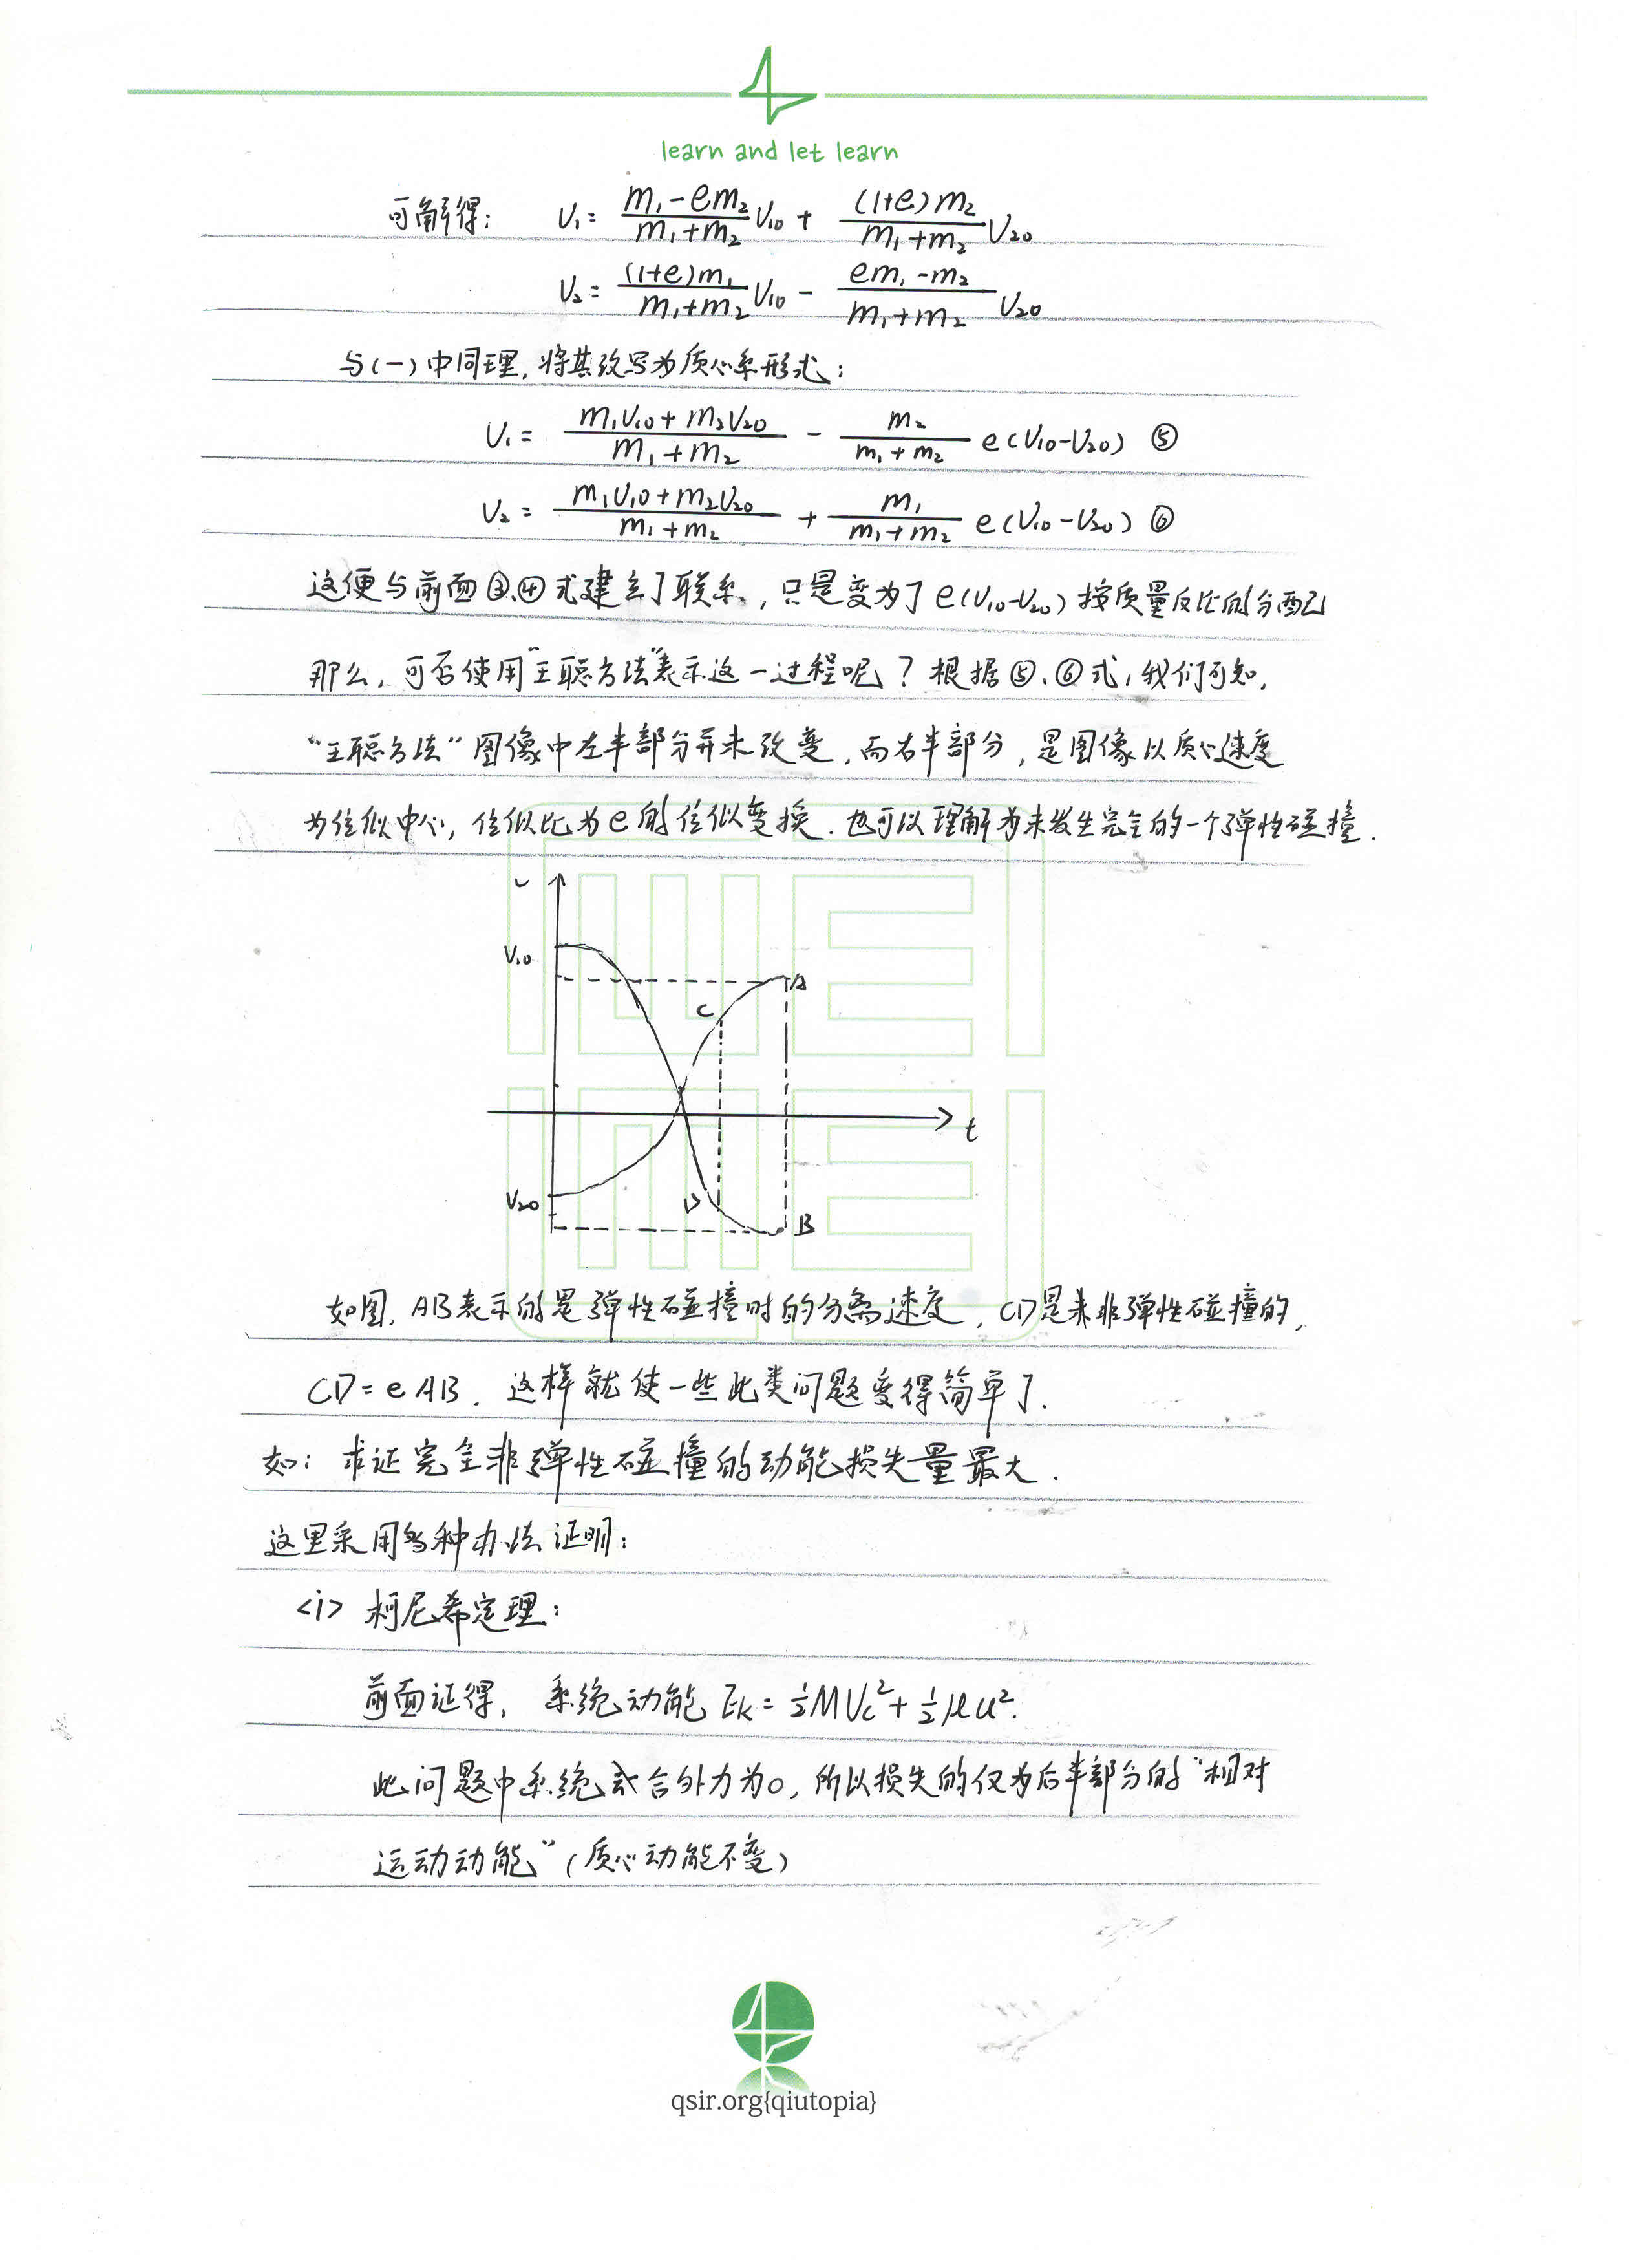 learn and let learn
可解得: V₁= (m₁-em₂)/(m₁+m₂) V₁₀ + ((1+e)m₂)/(m₁+m₂) V₂₀
V₂= ((1+e)m₁)/(m₁+m₂) V₁₀ - (em₁-m₂)/(m₁+m₂) V₂₀
与(一)中同理,将其改写为质心系形式:
V₁= (m₁V₁₀+m₂V₂₀)/(m₁+m₂) - m₂/(m₁+m₂) e(V₁₀-V₂₀) ⑤
V₂= (m₁V₁₀+m₂V₂₀)/(m₁+m₂) + m₁/(m₁+m₂) e(V₁₀-V₂₀) ⑥
这便与前面③、④式建立了联系,只是变为了e(V₁₀-V₂₀)按质量反比的分配
那么,可否使用"王聪方法"表示这一过程呢?根据⑤、⑥式,我们可知,
"王聪方法"图像中左半部分并未改变,而右半部分,是图像以质心速度
为位似中心,位似比为e的位似变换.也可以理解为未发生完全的一个弹性碰撞.
v
V₁₀
A
C
t
V₂₀
D
B
如图,AB表示的是弹性碰撞时的分离速度,CD是非弹性碰撞的,
CD=eAB.这样就使一些此类问题变得简单了.
如:求证完全非弹性碰撞的动能损失量最大.
这里采用多种办法证明:
<i> 柯尼希定理:
前面证得,系统动能 Eₖ=½MVc²+½μu².
此问题中系统合外力为0,所以损失的仅为后半部分的"相对
运动动能"(质心动能不变)
qsir.org{qiutopia}